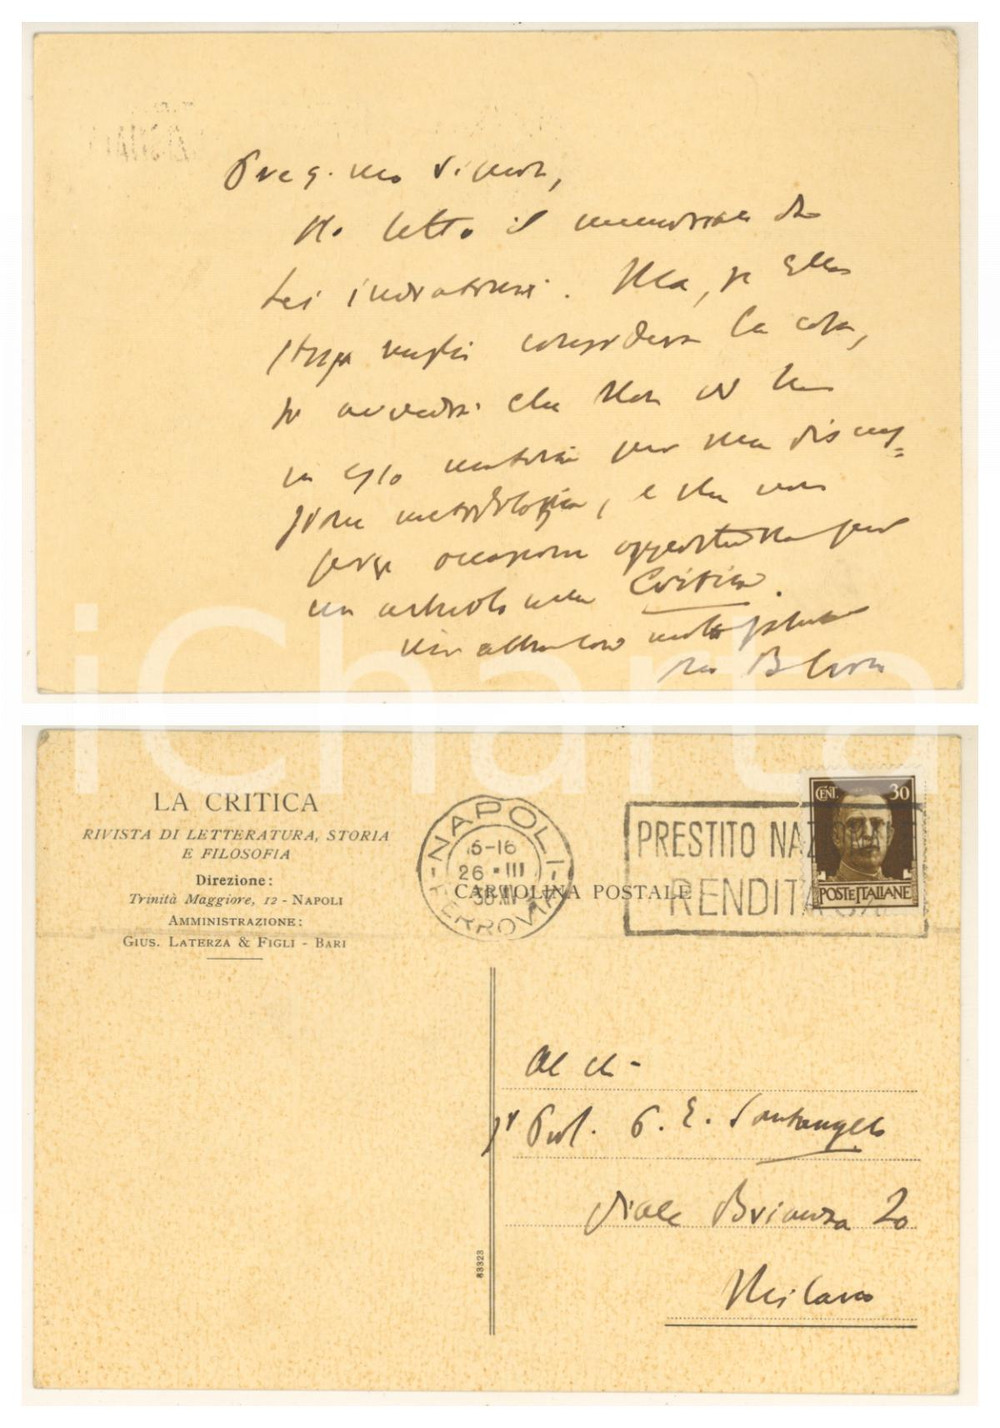 Preg.mo Signore,
Ho letto il memoriale da
Lei indirizzatomi. Ma, se Ella
stessa meglio considera la cosa,
si avvedrà che non vi ha
in esso materia per una discus=
sione metodologica, e che non
porge occasione opportuna per
un articolo nella Critica.
Mi abbia con molti saluti
suo B. Croce
LA CRITICA
RIVISTA DI LETTERATURA, STORIA
E FILOSOFIA
Direzione:
Trinità Maggiore, 12 - NAPOLI
AMMINISTRAZIONE:
GIUS. LATERZA & FIGLI - BARI
NAPOLI
FERROVIA
26 · III
CARTOLINA POSTALE
PRESTITO
RENDITA
CENT. 30
POSTE ITALIANE
Al ch-
Prof. P. E. Santangelo
Viale Brianza 20
Milano
83323
iCharta